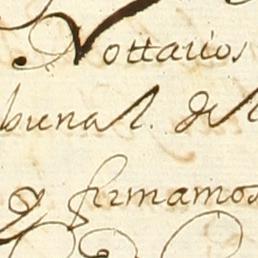 Nottarios
bunal. del
y firmamos